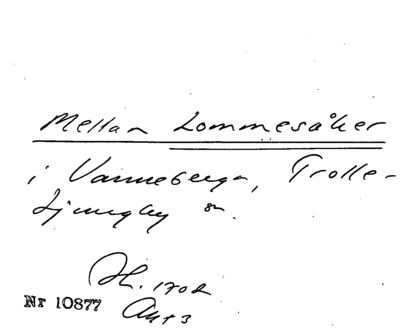 Mellan Lommesåker
i Vanneberga, Trolle-
Ljungby sn.
H. 1702
Nr 10877 Akt 3